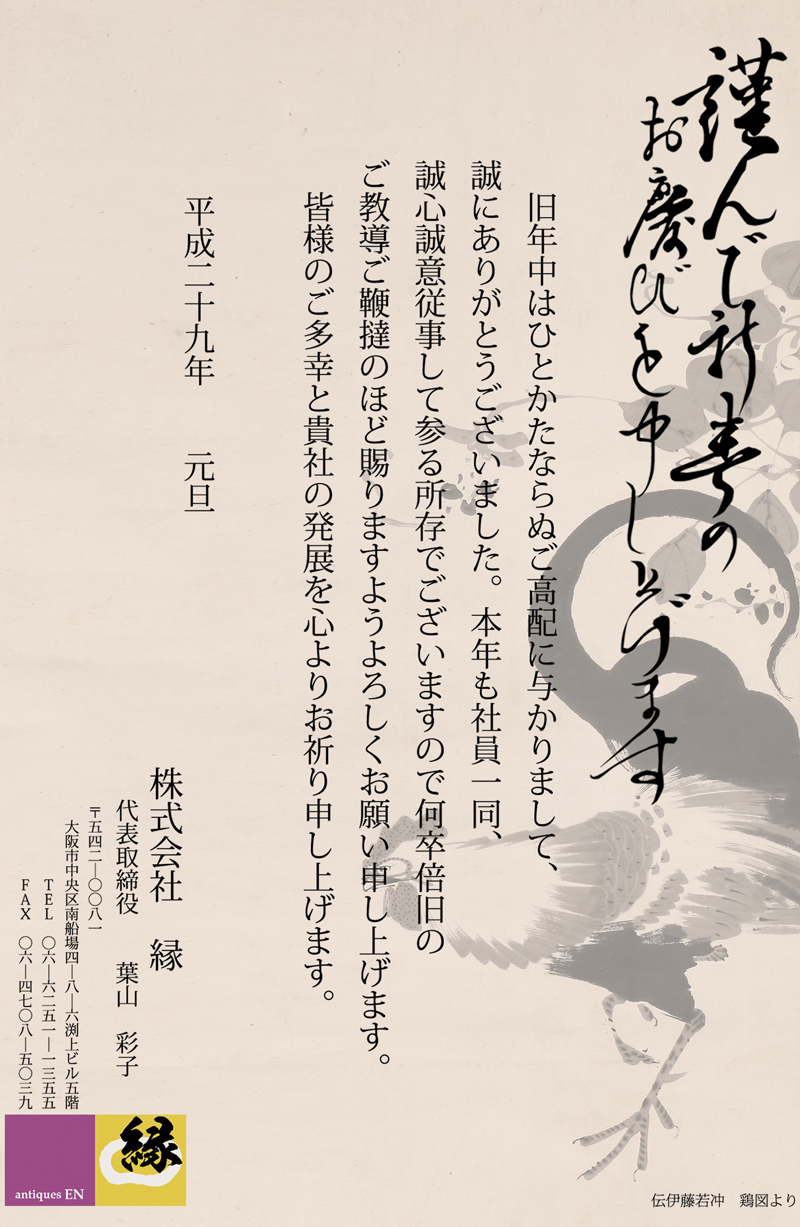 謹んで新春の
お慶びを申し上げます
旧年中はひとかたならぬご高配に与かりまして、
誠にありがとうございました。本年も社員一同、
誠心誠意従事して参る所存でございますので何卒倍旧の
ご教導ご鞭撻のほど賜りますようよろしくお願い申し上げます。
皆様のご多幸と貴社の発展を心よりお祈り申し上げます。
平成二十九年　元旦
株式会社　縁
代表取締役　葉山　彩子
〒五四二―〇〇八一
大阪市中央区南船場四―八―六渕上ビル五階
TEL　〇六―六二五一―一三五五
FAX　〇六―四七〇八―五〇三九
縁
antiques EN
伝伊藤若冲　鶏図より